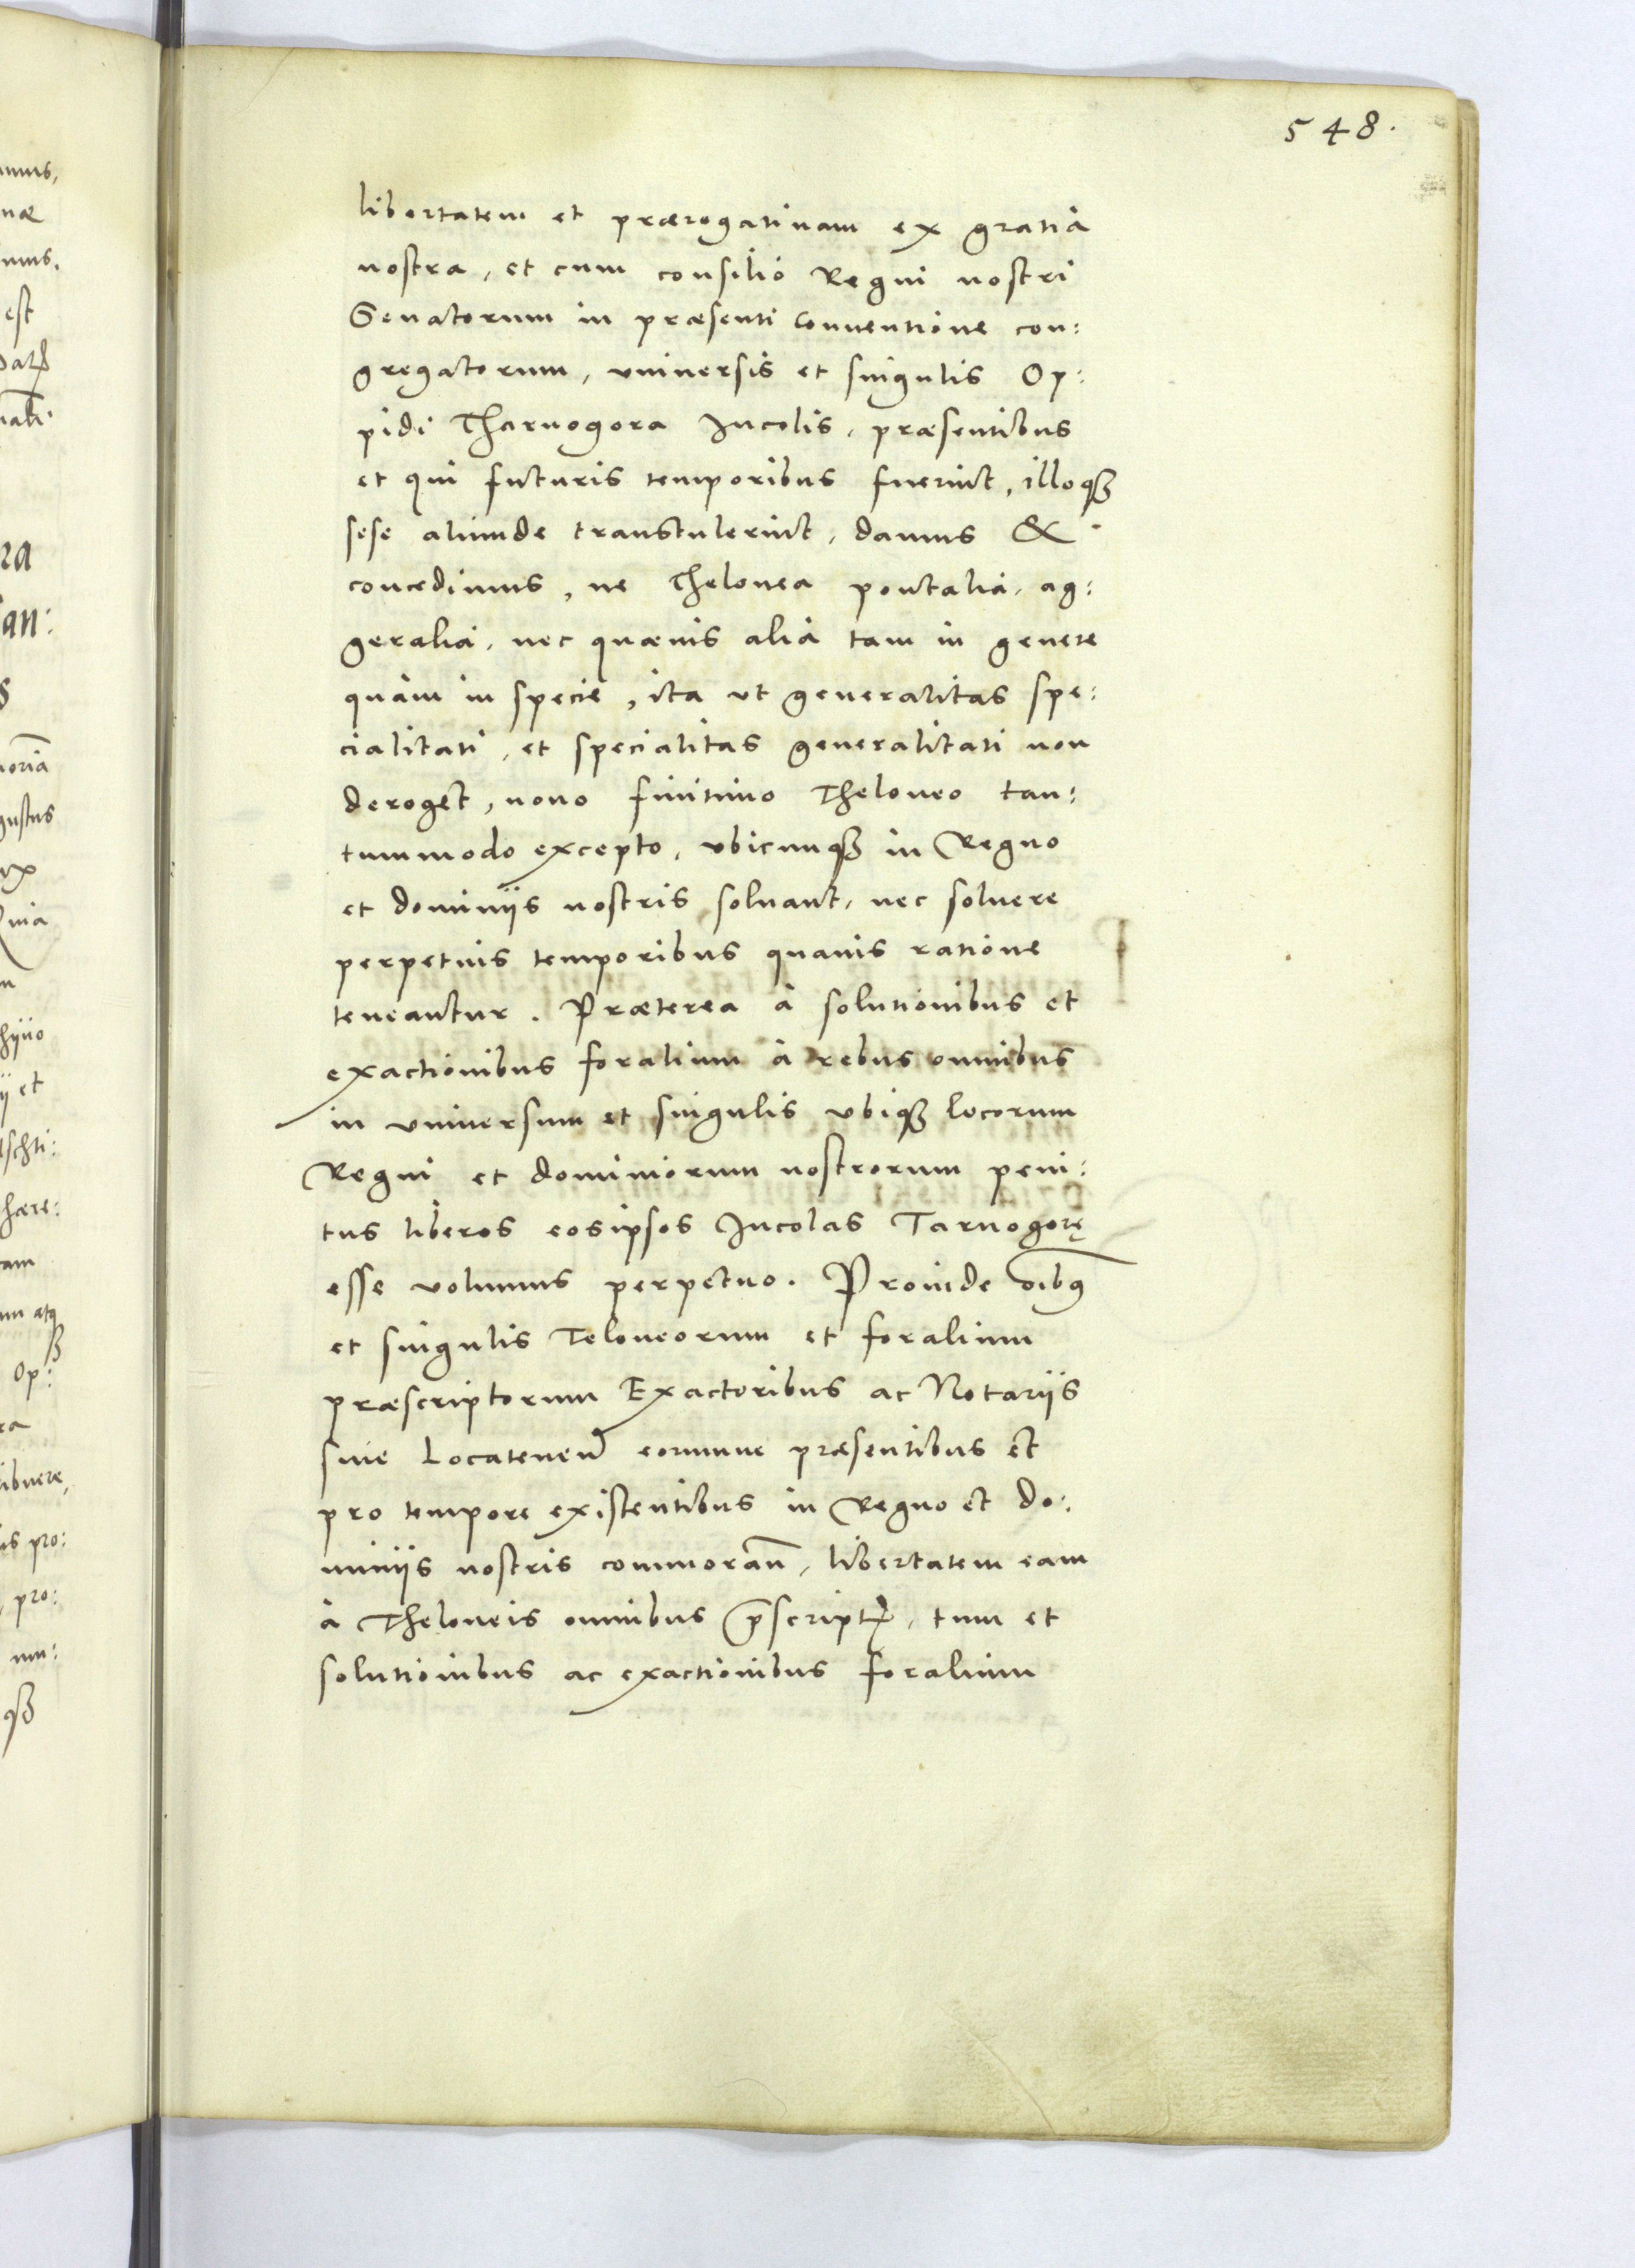 548.
libertatem et prærogatiuam ex gratia
nostra, et cum consilio Regni nostri
Senatorum in præsenti Conuentione con:
gregatorum, vniuersis et singulis Op:
pidi Tharnogora Incolis, præsentibus
et qui futuris temporibus fuerint, illoqȝ
sese aliunde transtulerint, damus &
concedimus, ne Thelonea pontalia, ag:
geralia, nec quæuis alia tam in genere
quàm in specie, ita vt generalitas spe:
cialitati, et specialitas generalitati non
deroget, nouo finitimo Theloneo tan:
tummodo excepto, vbicunqȝ in Regno
et dominijs nostris soluant, nec soluere
perpetuis temporibus quauis ratione
teneantur. Præterea à solutionibus et
exactionibus foralium à rebus omnibus
in vniuersum et singulis vbiqȝ locorum
Regni et dominiorum nostrorum peni:
tus liberos eosipsos Incolas Tarnogorę
esse volumus perpetuo. Proinde oībꝰ
et singulis Teloneorum et foralium
præscriptorum Exactoribus ac Notarijs
siue Locateneñ eorumue præsentibus et
pro tempore existentibus in Regno et do:
minijs nostris commorañ, libertatem eam
à Theloneis omnibus p̄script̄, tum et
solutionibus ac exactionibus foralium